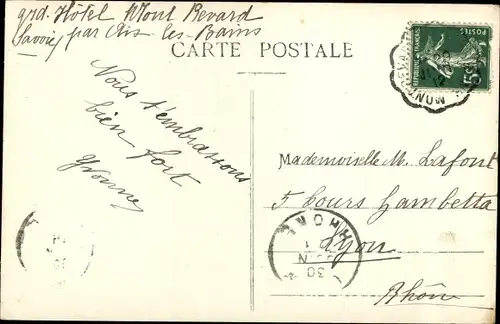 grd. Hôtel Mont Revard
(Savoie) par Aix les-Bains
CARTE POSTALE
Nous t'embrassons
bien fort
Yvonne
Mademoiselle M. Lafont
5 Cours Gambetta
Lyon
Rhône
POSTES
REPUBLIQUE FRANÇAISE
5c